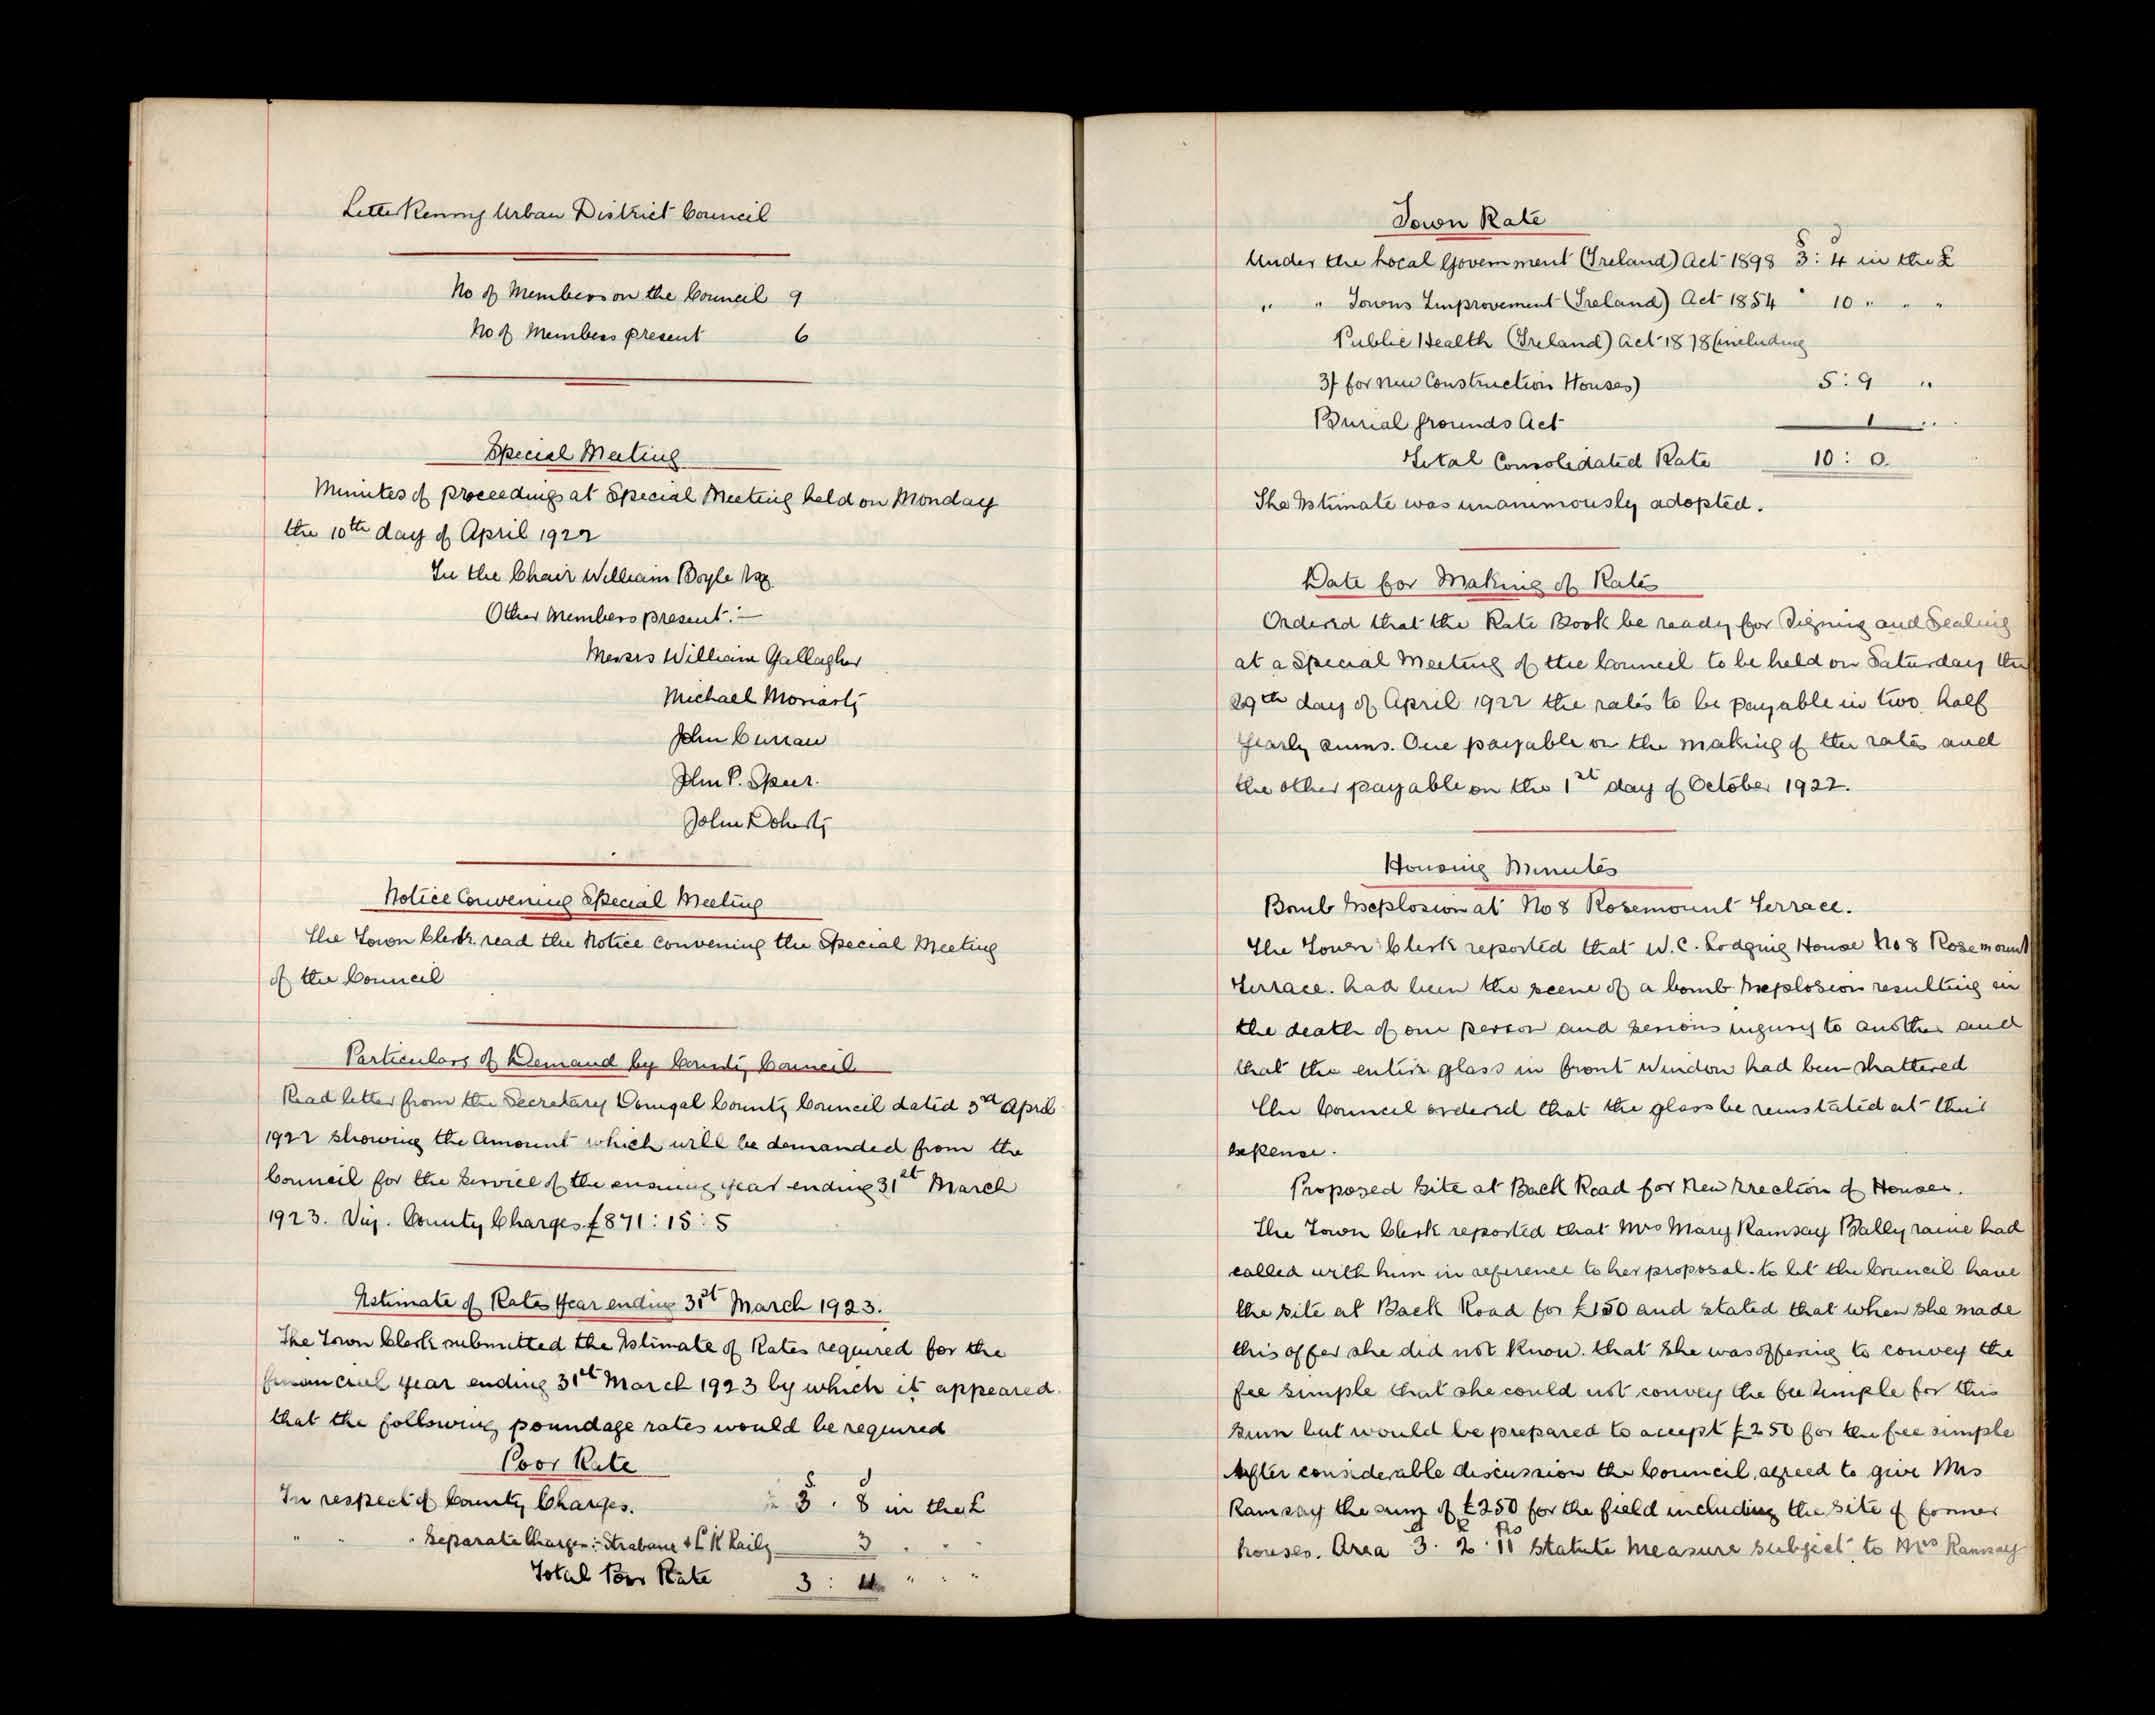 LetterKenny Urban District Council
No of Members on the Council 9
No of Members present 6
Special Meeting
Minutes of proceedings at Special Meeting held on Monday
the 10th day of April 1922
In the Chair William Boyle Esq.
Other Members present:-
Messrs William Gallagher
Michael Moriarty
John Curran
John P. Speer.
John Doherty
Notice Convening Special Meeting
The Town Clerk read the Notice convening the Special Meeting
of the Council
Particulars of Demand by County Council
Read letter from the Secretary Donegal County Council dated 3rd April
1922 showing the Amount which will be demanded from the
Council for the Service of the ensuing year ending 31st March
1923. Viz. County Charges £871:15:5
Estimate of Rates Year ending 31st March 1923.
The Town Clerk submitted the Estimate of Rates required for the
financial year ending 31st March 1923 by which it appeared
that the following poundage rates would be required
Poor Rate
S d
In respect of County Charges. 3 . 8 in the £
" " " Separate Charges:- Strabane & L K Raily 3 " " "
Total Poor Rate 3 : 11 " " "
Town Rate
S d
Under the Local Government (Ireland) Act 1898 3 : 4 in the £
" " Towns Improvement (Ireland) Act 1854 " 10 " " "
Public Health (Ireland) Act 1878 (including
3/- for new Construction Houses) 5 : 9 "
Burial Grounds Act 1 "
Total Consolidated Rate 10 : 0.
The Estimate was unanimously adopted.
Date for Making of Rates
Ordered that the Rate Book be ready for Signing and Sealing
at a Special Meeting of the Council to be held on Saturday the
29th day of April 1922 the rates to be payable in two half
Yearly sums. One payable on the making of the rates and
the other payable on the 1st day of October 1922.
Housing Minutes
Bomb Explosion at No 8 Rosemount Terrace.
The Town Clerk reported that W.C. Lodging House No 8 Rosemount
Terrace. had been the scene of a bomb Explosion resulting in
the death of one person and serious injury to another and
that the entire glass in front Window had been shattered
The Council ordered that the glass be reinstated at their
expense.
Proposed Site at Back Road for New Erection of Houses.
The Town Clerk reported that Mrs Mary Ramsay Ballyraine had
called with him in reference to her proposal. to let the Council have
the site at Back Road for £150 and stated that when she made
this offer she did not know. that she was offering to convey the
fee simple that she could not convey the fee simple for this
sum but would be prepared to accept £250 for the fee simple
After considerable discussion the Council agreed to give Mrs
Ramsay the sum of £250 for the field including the site of former
A R Ps
houses. Area 3 . 2 . 11 Statute Measure subject to Mrs Ramsay